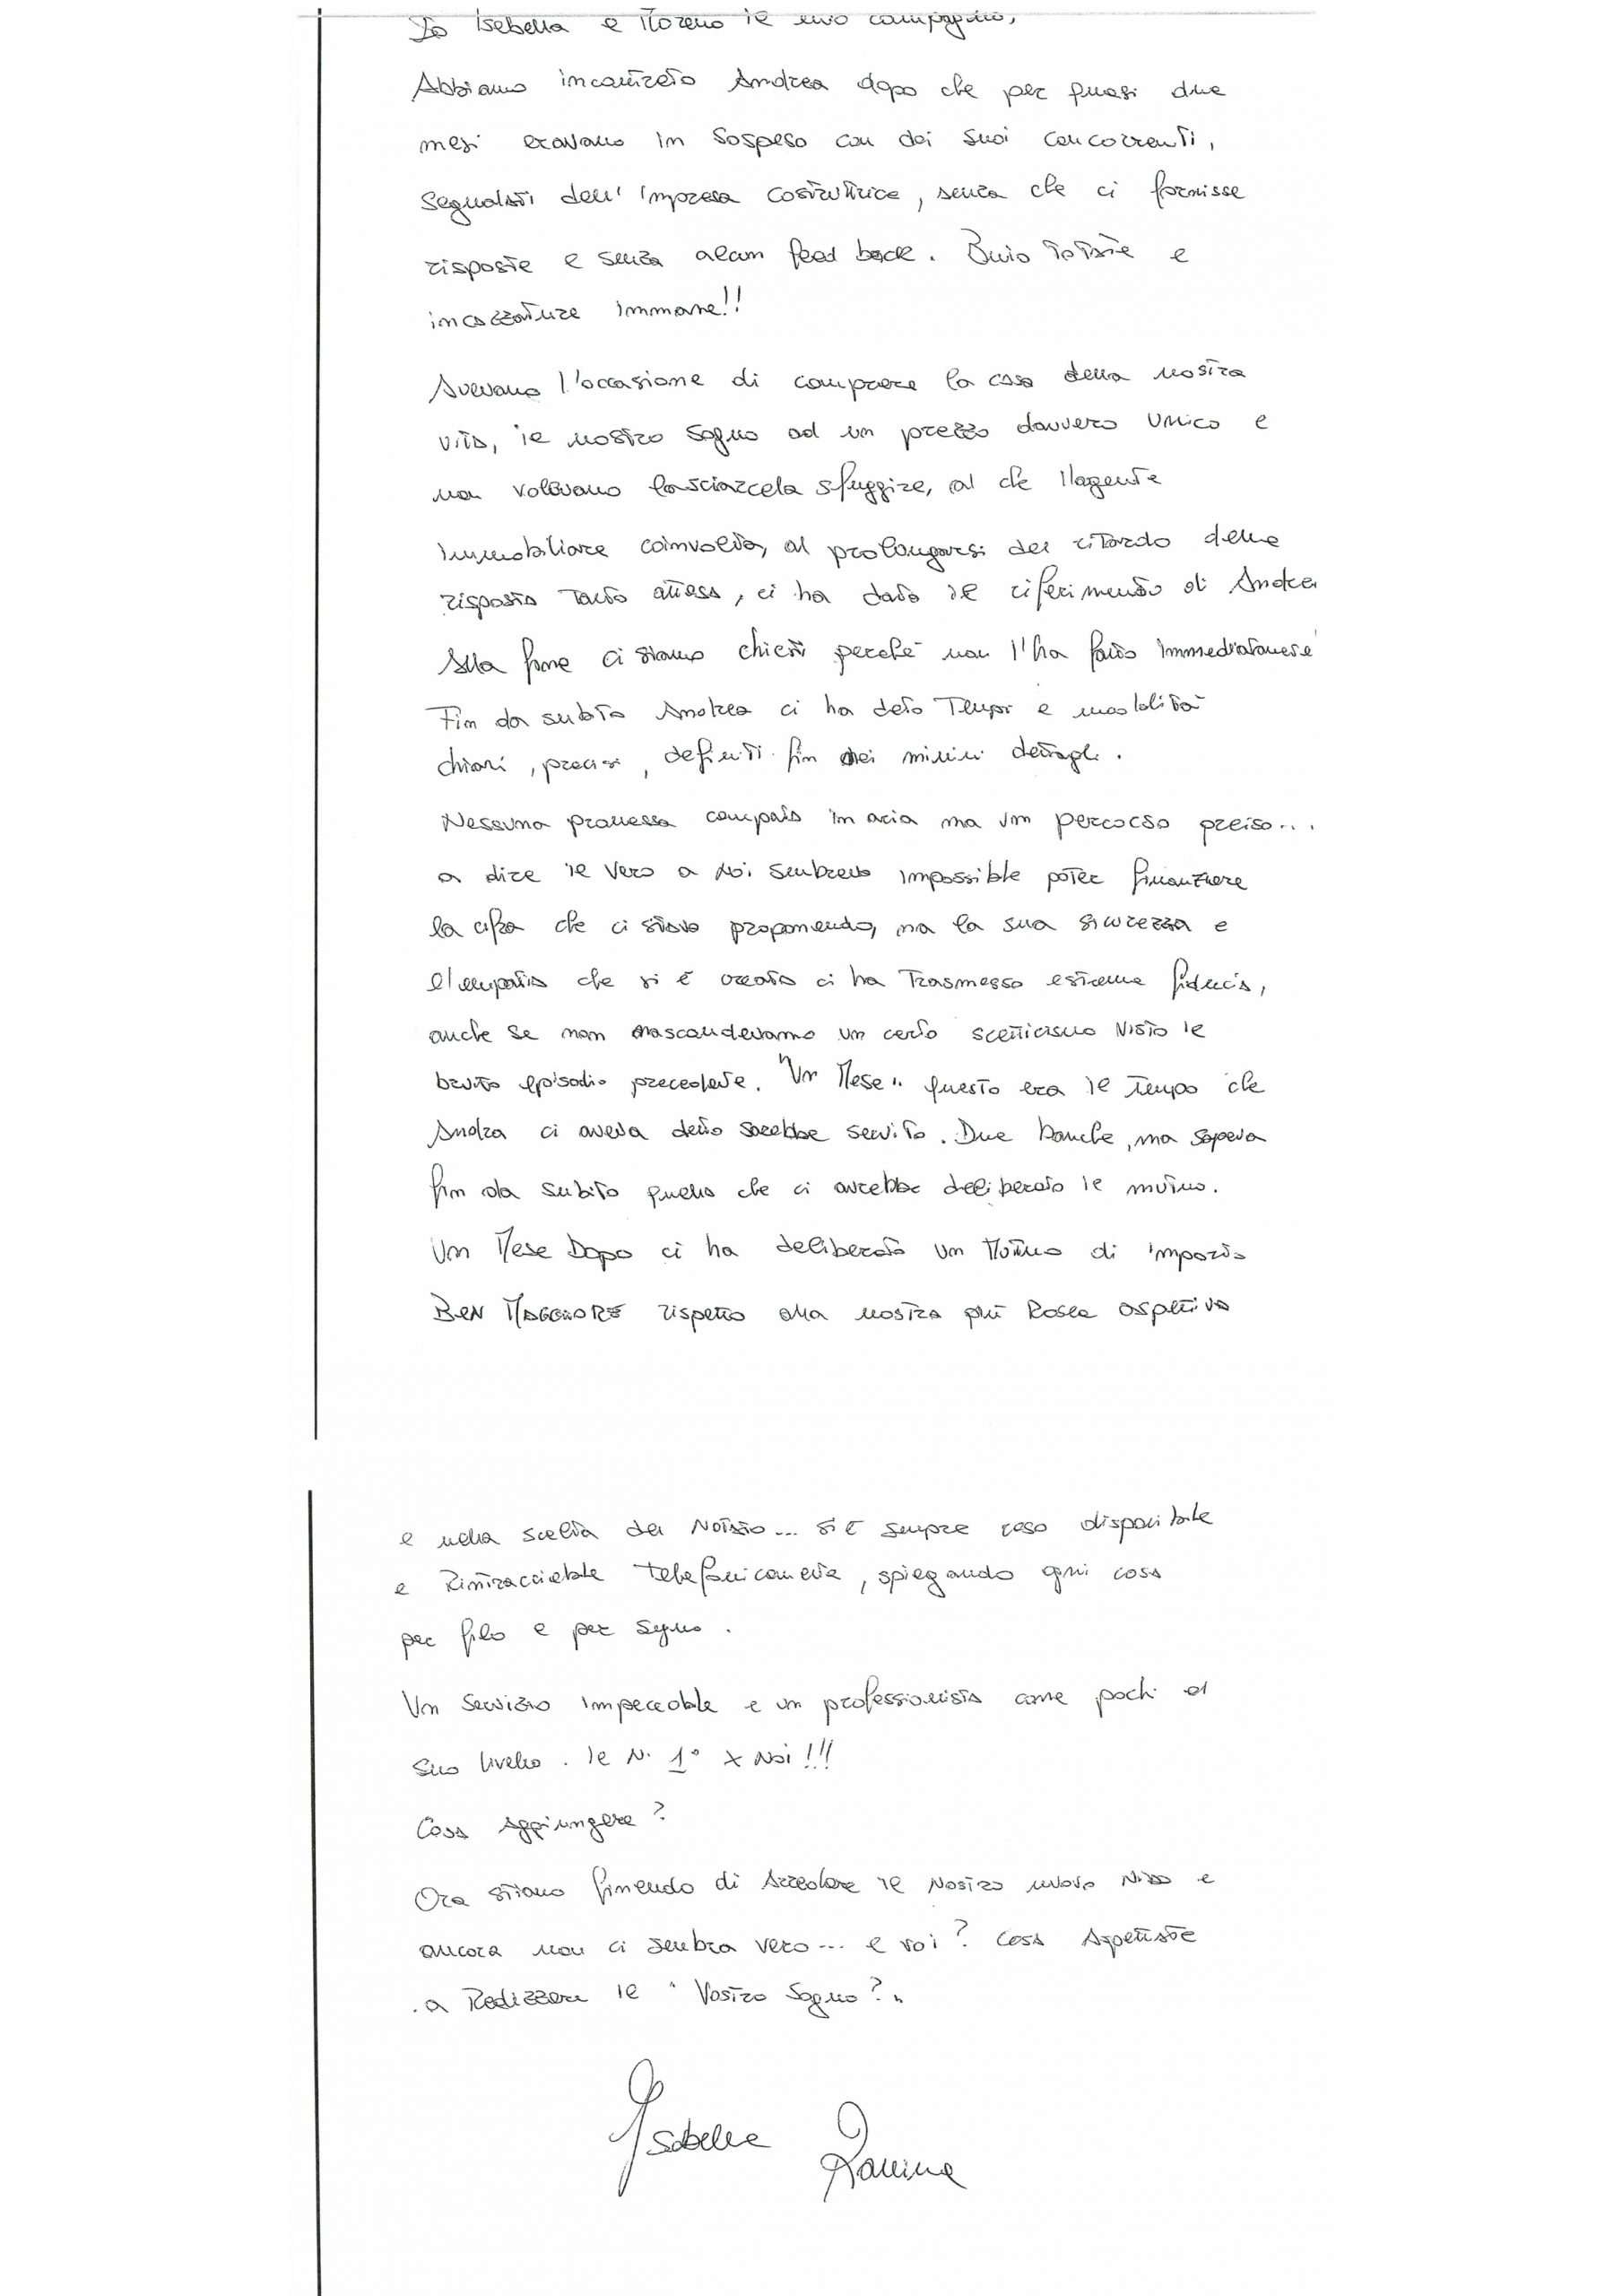 Io Isabella e Moreno il mio compagno,
Abbiamo incontrato Andrea dopo che per quasi due
mesi eravamo in sospeso con dei suoi concorrenti,
segnalati dall'impresa costruttrice, senza che ci fornisse
risposte e senza alcun feed back. Buio totale e
incazzature immane!!
Avevamo l'occasione di comprare la casa della nostra
vita, il nostro sogno ad un prezzo davvero unico e
non volevamo lasciarcela sfuggire, al che l'agente
immobiliare coinvolta, al prolungarsi del ritardo della
risposta tanto attesa, ci ha dato il riferimento di Andrea
Alla fine ci siamo chiesti perché non l'ha fatto immediatamente
Fin da subito Andrea ci ha dato Tempi e modalità
chiari, precisi, definiti fin nei minimi dettagli.
Nessuna promessa campata in aria ma un percorso preciso...
a dire il vero a noi sembrava impossibile poter finanziare
la cifra che ci stava proponendo, ma la sua sicurezza e
l'empatia che si è creata ci ha Trasmesso estrema fiducia,
anche se non nascondevamo un certo scetticismo visto il
brutto episodio precedente. "Un Mese" questo era il tempo che
Andrea ci aveva detto sarebbe servito. Due banche, ma sapeva
fin da subito quella che ci avrebbe deliberato il mutuo.
Un Mese Dopo ci ha deliberato un Mutuo di importo
BEN MAGGIORE rispetto alla nostra più Rosea aspettiva
e nella scelta del Notaio... si è sempre reso disponibile
e Rintracciabile telefonicamente, spiegando ogni cosa
per filo e per segno.
Un Servizio impeccabile e un professionista come pochi al
suo livello. Il N. 1° x Noi!!!
Cosa Aggiungere?
Ora stiamo finendo di Arredare il Nostro nuovo Nido e
ancora non ci sembra vero... e voi? Cosa Aspettate
a Realizzare il "Vostro Sogno?"
Isabella